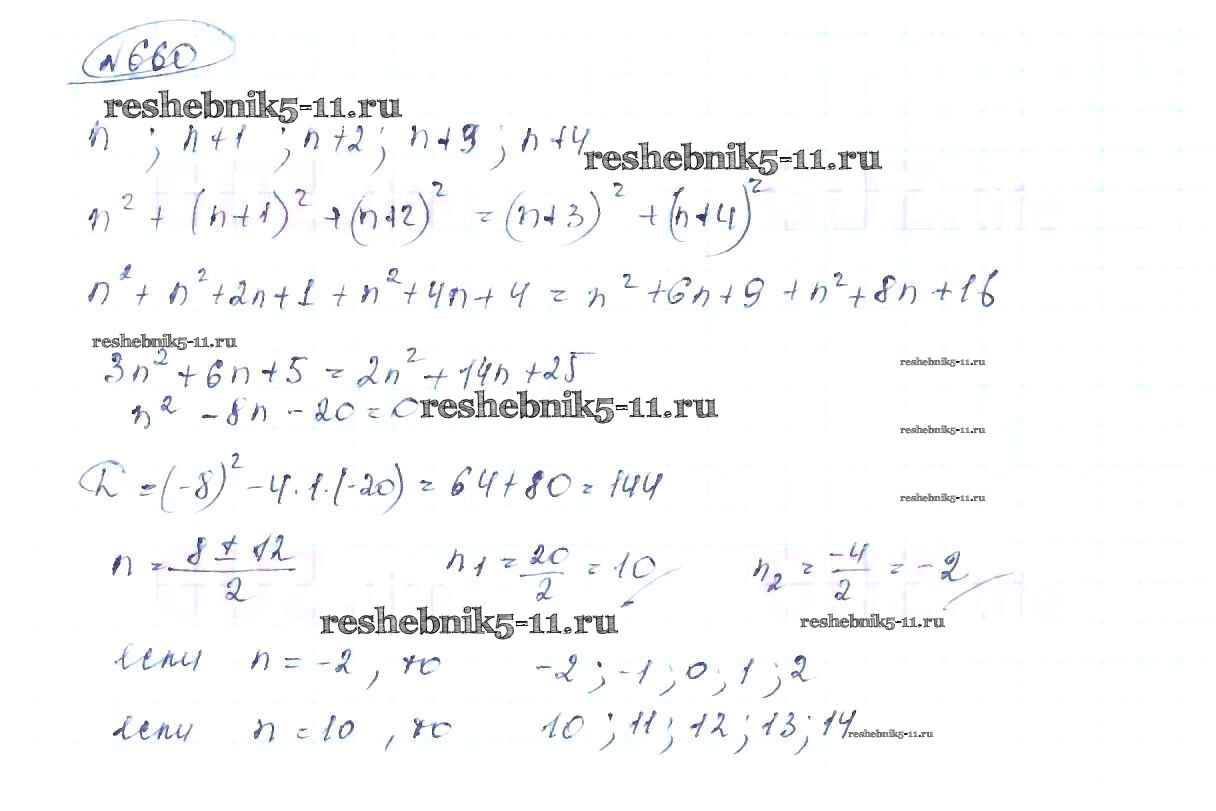 №660
reshebnik5-11.ru
n ; n+1 ; n+2 ; n+3 ; n+4
reshebnik5-11.ru
n² + (n+1)² + (n+2)² = (n+3)² + (n+4)²
n² + n² + 2n + 1 + n² + 4n + 4 = n² + 6n + 9 + n² + 8n + 16
reshebnik5-11.ru
3n² + 6n + 5 = 2n² + 14n + 25
reshebnik5-11.ru
n² - 8n - 20 = 0
reshebnik5-11.ru
reshebnik5-11.ru
D = (-8)² - 4·1·(-20) = 64 + 80 = 144
reshebnik5-11.ru
n = (8 ± 12)/2 n₁ = 20/2 = 10 n₂ = -4/2 = -2
reshebnik5-11.ru
reshebnik5-11.ru
если n = -2, то -2 ; -1 ; 0 ; 1 ; 2
если n = 10, то 10 ; 11 ; 12 ; 13 ; 14
reshebnik5-11.ru